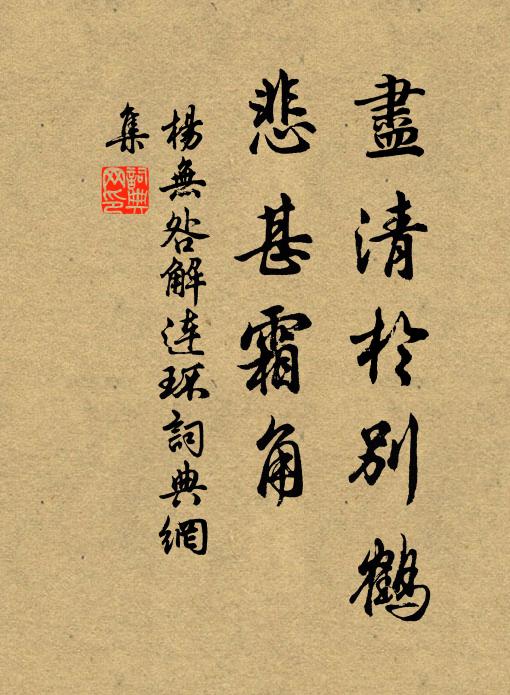 盡清於別鶴
悲甚霜角
楊無咎解連環詞典網
集
詞典網印